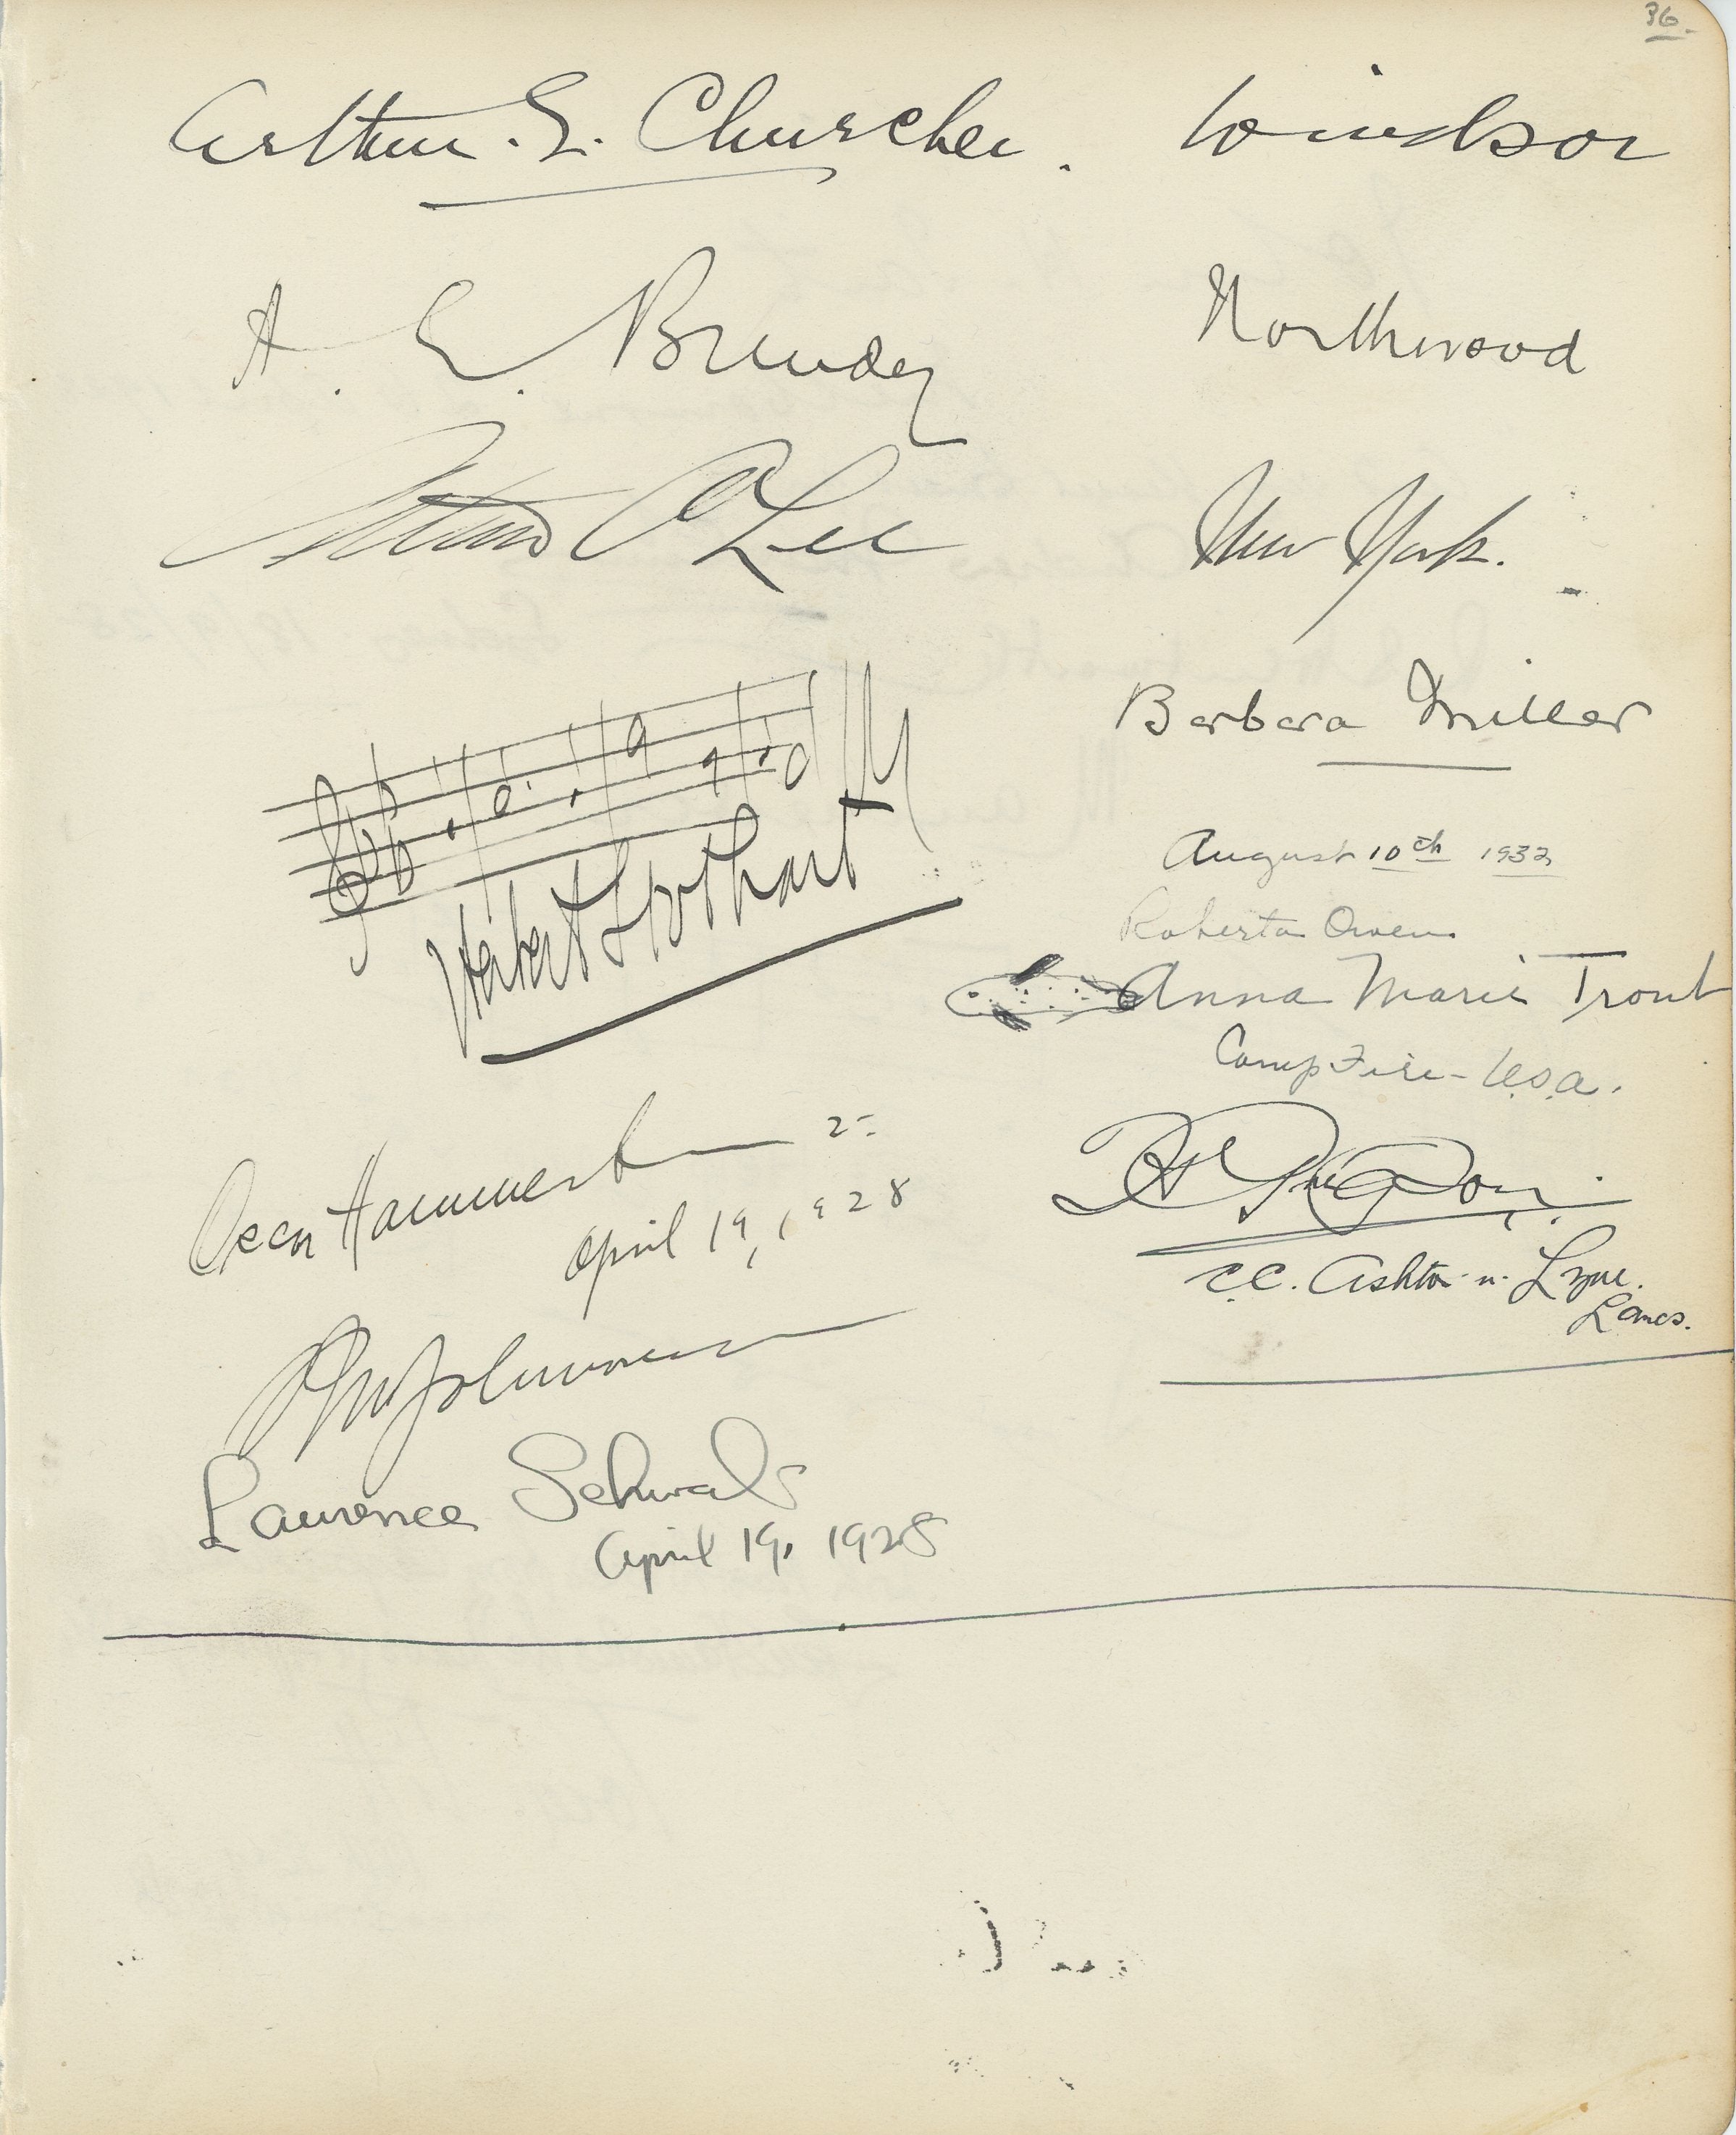 36.
Arthur. S. Churcher. Windsor
A. E. Brundey Northwood
Arthur Lee New York.
Herbert Stothart
Oscar Hammerstein 2nd
April 19, 1928
Johnson
Laurence Schwab
April 19, 1928
Barbara Miller
August 10th 1932
Roberta Owen
Anna Marie Trout
Camp Fire - U.S.A.
C.C. Ashton-u-Lyne.
Lancs.